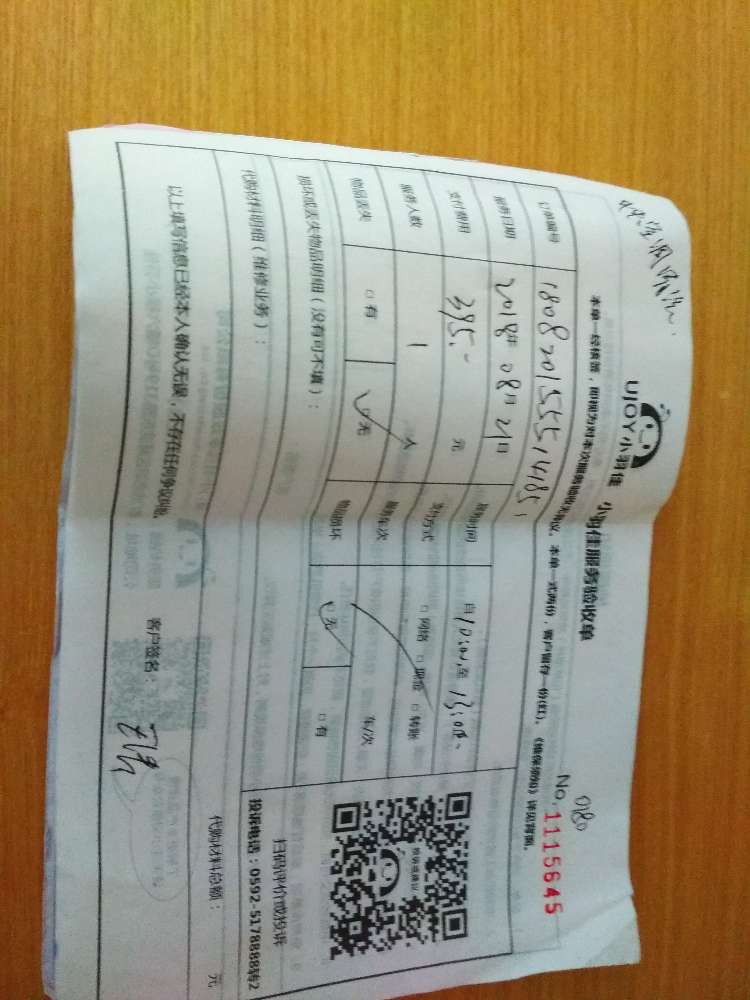 UJOY小羽佳 小羽佳服务验收单
0180
No.1115645
本单一经核签，即视为对本次服务验收无异议。本单一式两份，客户留存一份(红)。《维保须知》详见背面。
订单编号
服务日期 2018年 08月 21日 服务时间 自 10:00 至 13:00
支付费用 385.- 元 支付方式 □ 网络 □ 现金 □ 转账
服务人数 1 人 服务车次 车/次
物品丢失 □ 有 □ 无 物品损坏 □ 无 □ 有
损坏或丢失物品明细（没有可不填）：
扫码评价或投诉
投诉电话：0592-5178888转2
代购材料明细（维修业务）：
代购材料总额： 元
以上填写信息已经本人确认无误，不存在任何争议纠纷。 客户签名：